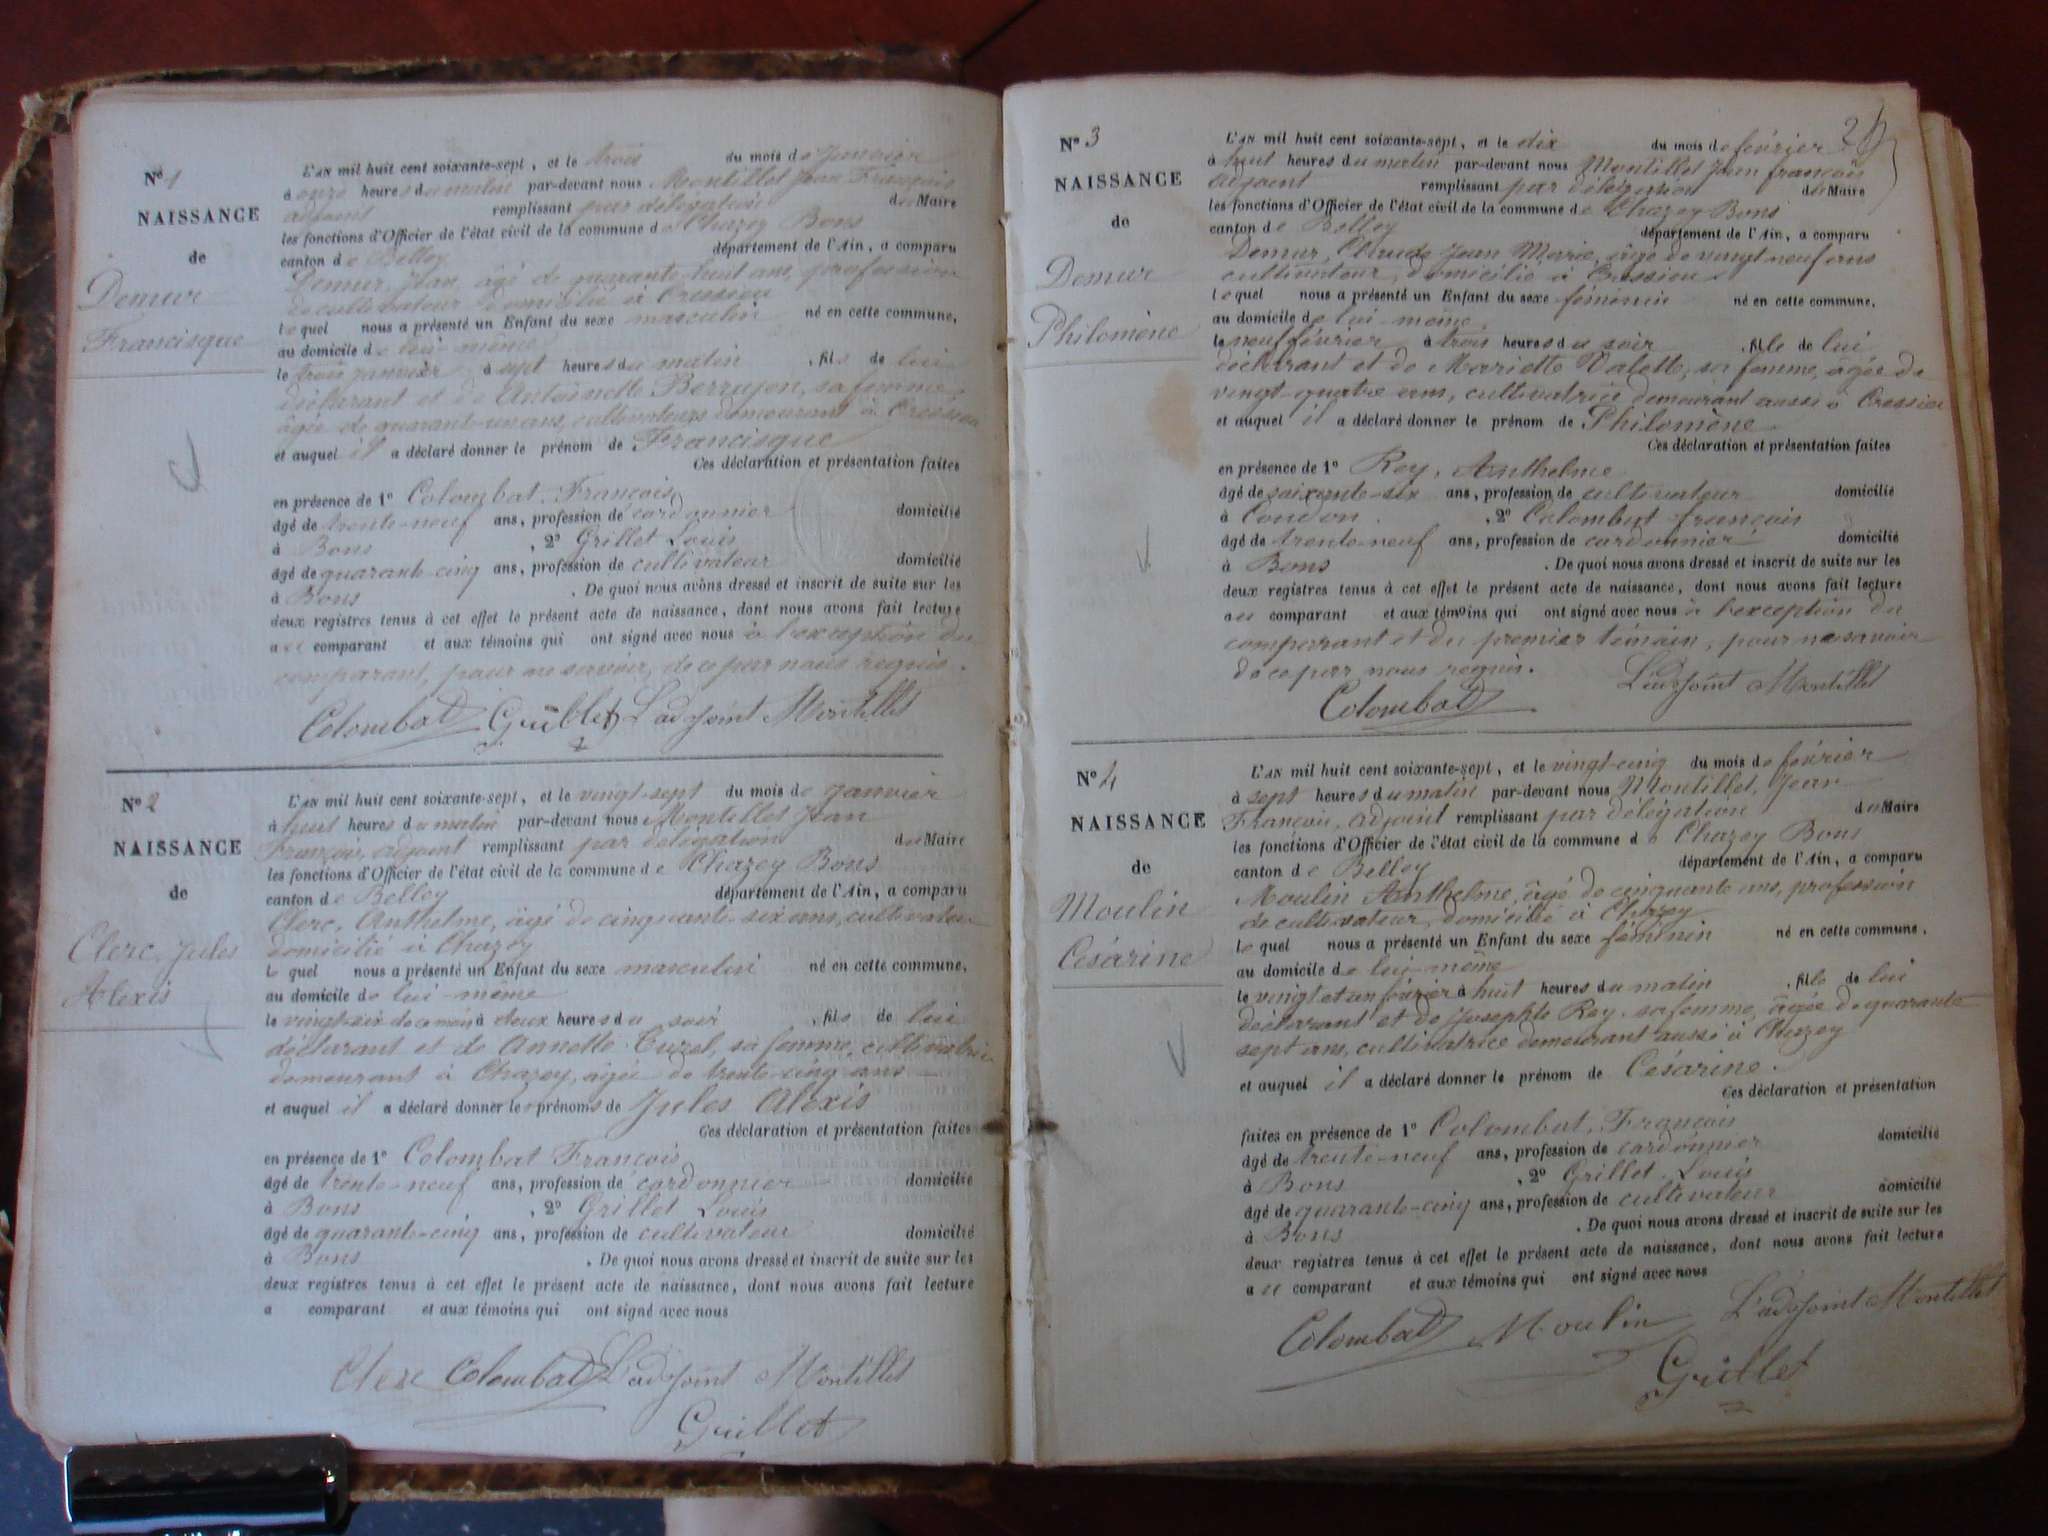 N° 1
NAISSANCE
de
Demur
Francisque
L'AN mil huit cent soixante-sept, et le trois du mois de janvier
à onze heures du matin par-devant nous Montillet Jean François
adjoint remplissant par délégation du Maire
les fonctions d'Officier de l'état civil de la commune de Chazey Bons
canton de Belley département de l'Ain, a comparu
Demur, Jean, âgé de quarante-huit ans, profession
de cultivateur domicilié à Cressieu
lequel nous a présenté un Enfant du sexe masculin né en cette commune,
au domicile de lui-même
le trois janvier à sept heures du matin, fils de lui
déclarant et de Antoinette Berrujon, sa femme,
âgée de quarante-un ans, cultivateurs demeurant à Cressieu
et auquel il a déclaré donner le prénom de Francisque
Ces déclaration et présentation faites
en présence de 1° Colombat François
âgé de trente-neuf ans, profession de cordonnier domicilié
à Bons, 2° Grillet Louis
âgé de quarante-cinq ans, profession de cultivateur domicilié
à Bons. De quoi nous avons dressé et inscrit de suite sur les
deux registres tenus à cet effet le présent acte de naissance, dont nous avons fait lecture
au comparant et aux témoins qui ont signé avec nous à l'exception du
comparant, pour ne savoir, de ce par nous requis.
Colombat Grillet L'adjoint Montillet
N° 2
NAISSANCE
de
Clerc, Jules
Alexis
L'AN mil huit cent soixante-sept, et le vingt-sept du mois de janvier
à huit heures du matin par-devant nous Montillet Jean
François, adjoint remplissant par délégation du Maire
les fonctions d'Officier de l'état civil de la commune de Chazey Bons
canton de Belley département de l'Ain, a comparu
Clerc, Anthelme, âgé de cinquante-six ans, cultivateur
domicilié à Chazey
lequel nous a présenté un Enfant du sexe masculin né en cette commune,
au domicile de lui-même
le vingt-six de ce mois à deux heures du soir, fils de lui
déclarant et de Annette Curel, sa femme, cultivatrice
demeurant à Chazey, âgée de trente-cinq ans
et auquel il a déclaré donner les prénoms de Jules Alexis
Ces déclaration et présentation faites
en présence de 1° Colombat François
âgé de trente-neuf ans, profession de cordonnier domicilié
à Bons, 2° Grillet Louis
âgé de quarante-cinq ans, profession de cultivateur domicilié
à Bons. De quoi nous avons dressé et inscrit de suite sur les
deux registres tenus à cet effet le présent acte de naissance, dont nous avons fait lecture
a comparant et aux témoins qui ont signé avec nous
Clerc Colombat L'adjoint Montillet
Grillet
N° 3
NAISSANCE
de
Demur
Philomène
L'AN mil huit cent soixante-sept, et le dix du mois de février
à huit heures du matin par-devant nous Montillet Jean françois
adjoint remplissant par délégation du Maire
les fonctions d'Officier de l'état civil de la commune de Chazey-Bons
canton de Belley département de l'Ain, a comparu
Demur, Claude Jean Marie, âgé de vingt neuf ans
cultivateur, domicilié à Cressieu
lequel nous a présenté un Enfant du sexe féminin né en cette commune,
au domicile de lui-même,
le neuf février à trois heures du soir, fille de lui
déclarant et de Mariette Valette, sa femme, âgée de
vingt-quatre ans, cultivatrice demeurant aussi à Cressieu
et auquel il a déclaré donner le prénom de Philomène
Ces déclaration et présentation faites
en présence de 1° Rey, Anthelme
âgé de soixante-six ans, profession de cultivateur domicilié
à Condon, 2° Colombat françois
âgé de trente-neuf ans, profession de cordonnier domicilié
à Bons. De quoi nous avons dressé et inscrit de suite sur les
deux registres tenus à cet effet le présent acte de naissance, dont nous avons fait lecture
au comparant et aux témoins qui ont signé avec nous à l'exception du
comparant et du premier témoin, pour ne savoir
de ce par nous requis. L'adjoint Montillet
Colombat
N° 4
NAISSANCE
de
Moulin
Césarine
L'AN mil huit cent soixante-sept, et le vingt-cinq du mois de février
à sept heures du matin par-devant nous Montillet, Jean
François, adjoint remplissant par délégation du Maire
les fonctions d'Officier de l'état civil de la commune de Chazey Bons
canton de Belley département de l'Ain, a comparu
Moulin Anthelme, âgé de cinquante ans, profession
de cultivateur, domicilié à Chazey
lequel nous a présenté un Enfant du sexe féminin né en cette commune,
au domicile de lui-même
le vingt et un février à huit heures du matin, fille de lui
déclarant et de Josephte Rey, sa femme, âgée de quarante
sept ans, cultivatrice demeurant aussi à Chazey
et auquel il a déclaré donner le prénom de Césarine.
Ces déclaration et présentation
faites en présence de 1° Colombat, François
âgé de trente-neuf ans, profession de cordonnier domicilié
à Bons, 2° Grillet, Louis
âgé de quarante-cinq ans, profession de cultivateur domicilié
à Bons. De quoi nous avons dressé et inscrit de suite sur les
deux registres tenus à cet effet le présent acte de naissance, dont nous avons fait lecture
au comparant et aux témoins qui ont signé avec nous
Colombat Moulin L'adjoint Montillet
Grillet